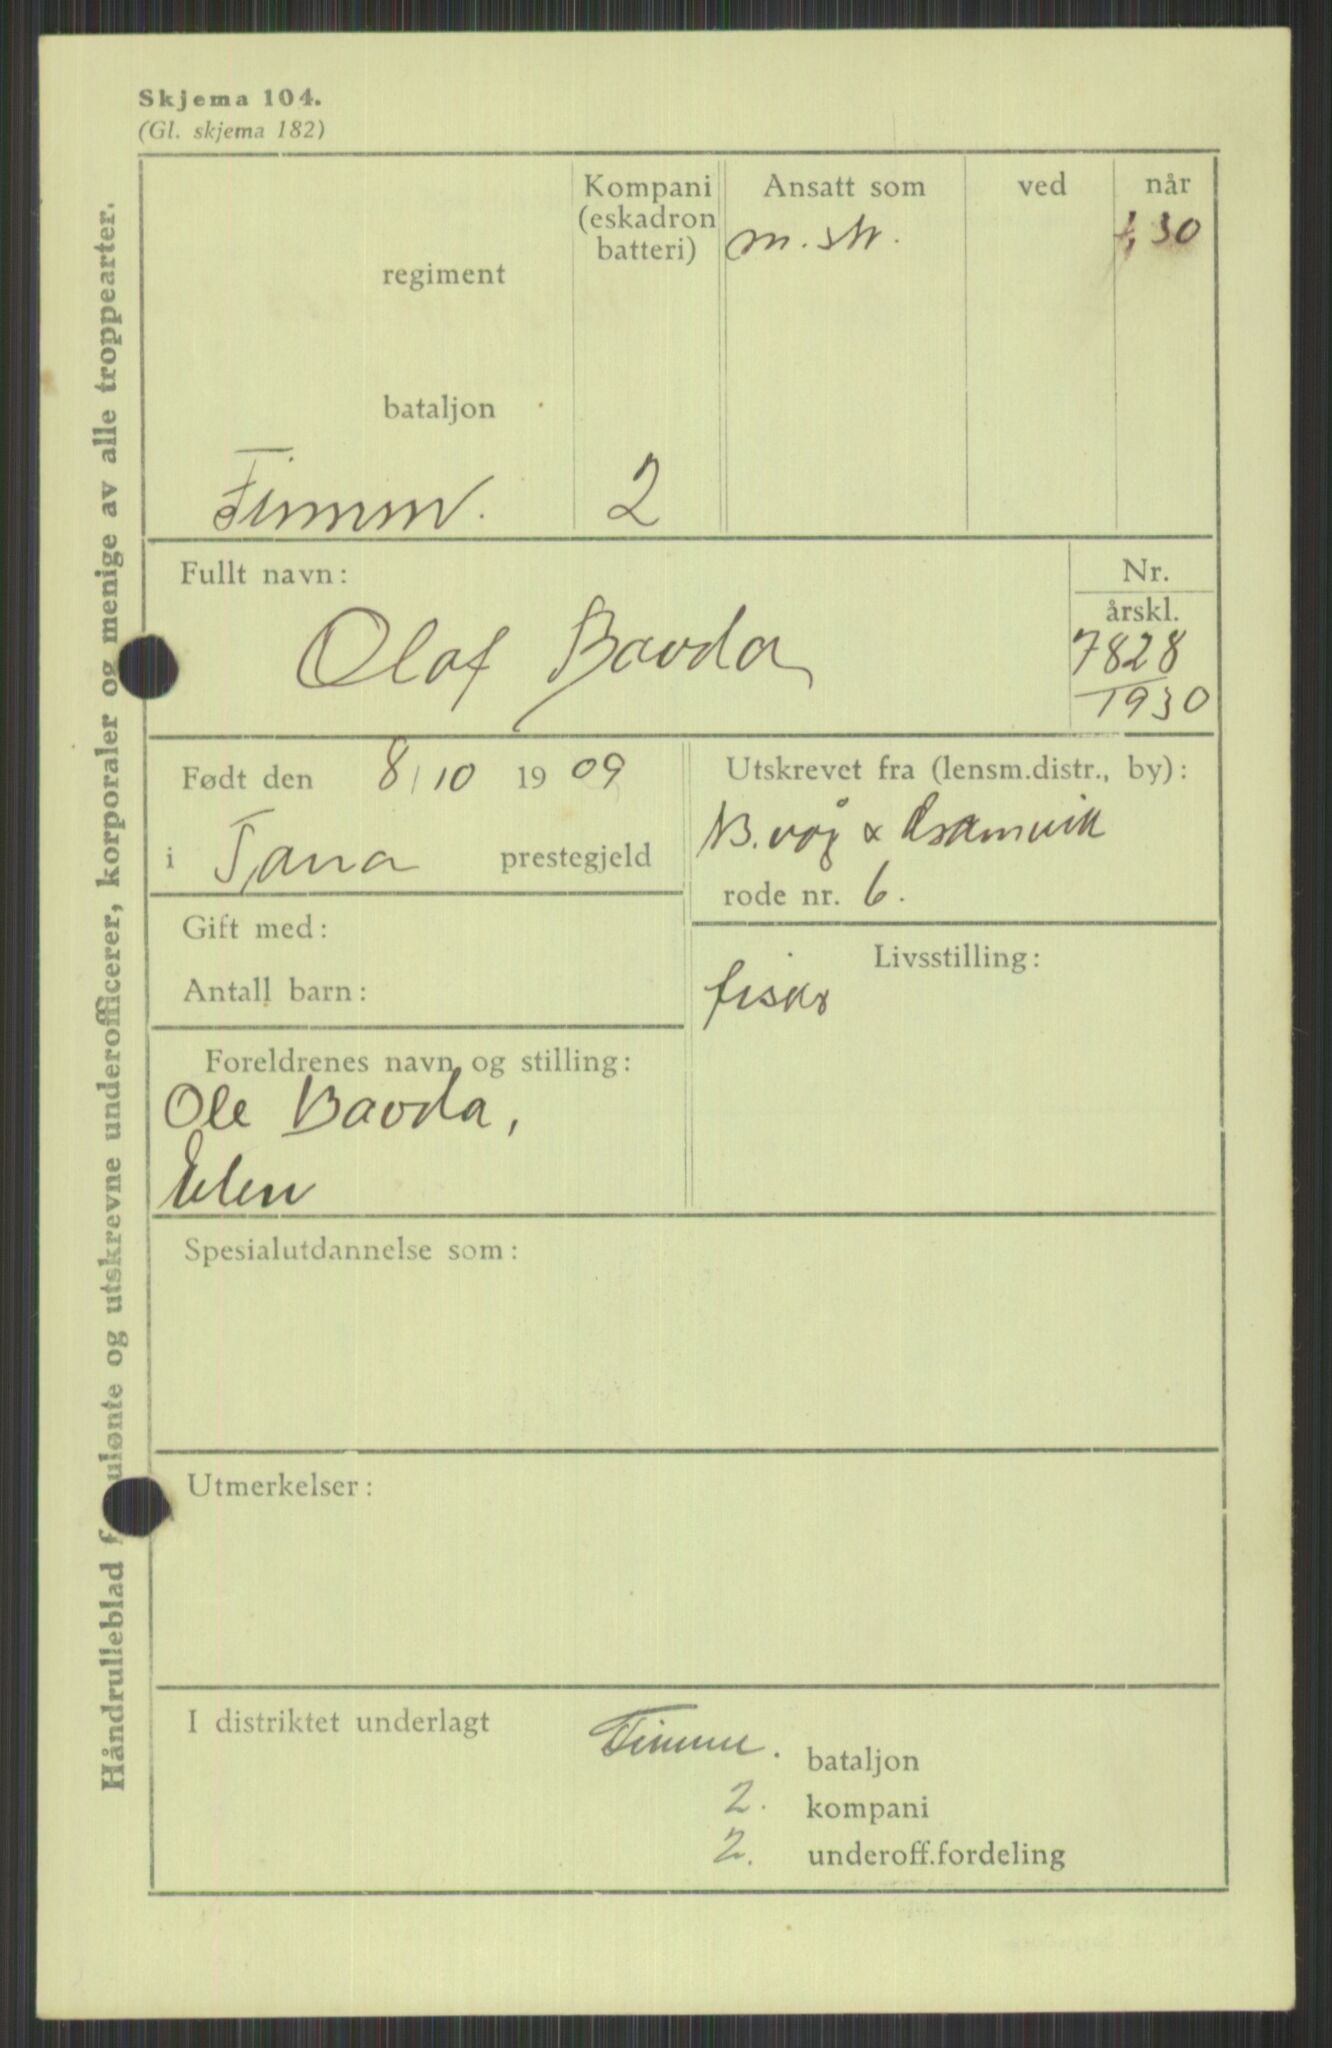 Skjema 104.
(Gl. skjema 182)
Håndrulleblad f ulønte og utskrevne underofficerer, korporaler og menige av alle troppearter.
Kompani
(eskadron
batteri)
Ansatt som
ved
når
m. str.
30
regiment
bataljon
Finnm.
2
Fullt navn:
Olaf Bavda
Nr.
årskl.
7828
1930
Født den 8/10 1909
i Tana prestegjeld
Utskrevet fra (lensm.distr., by):
N.
rode nr. 6.
Gift med:
Antall barn:
Livsstilling:
fisker
Foreldrenes navn og stilling:
Ole Bavda,
Elen
Spesialutdannelse som:
Utmerkelser:
I distriktet underlagt
Finnm. bataljon
2. kompani
2. underoff.fordeling